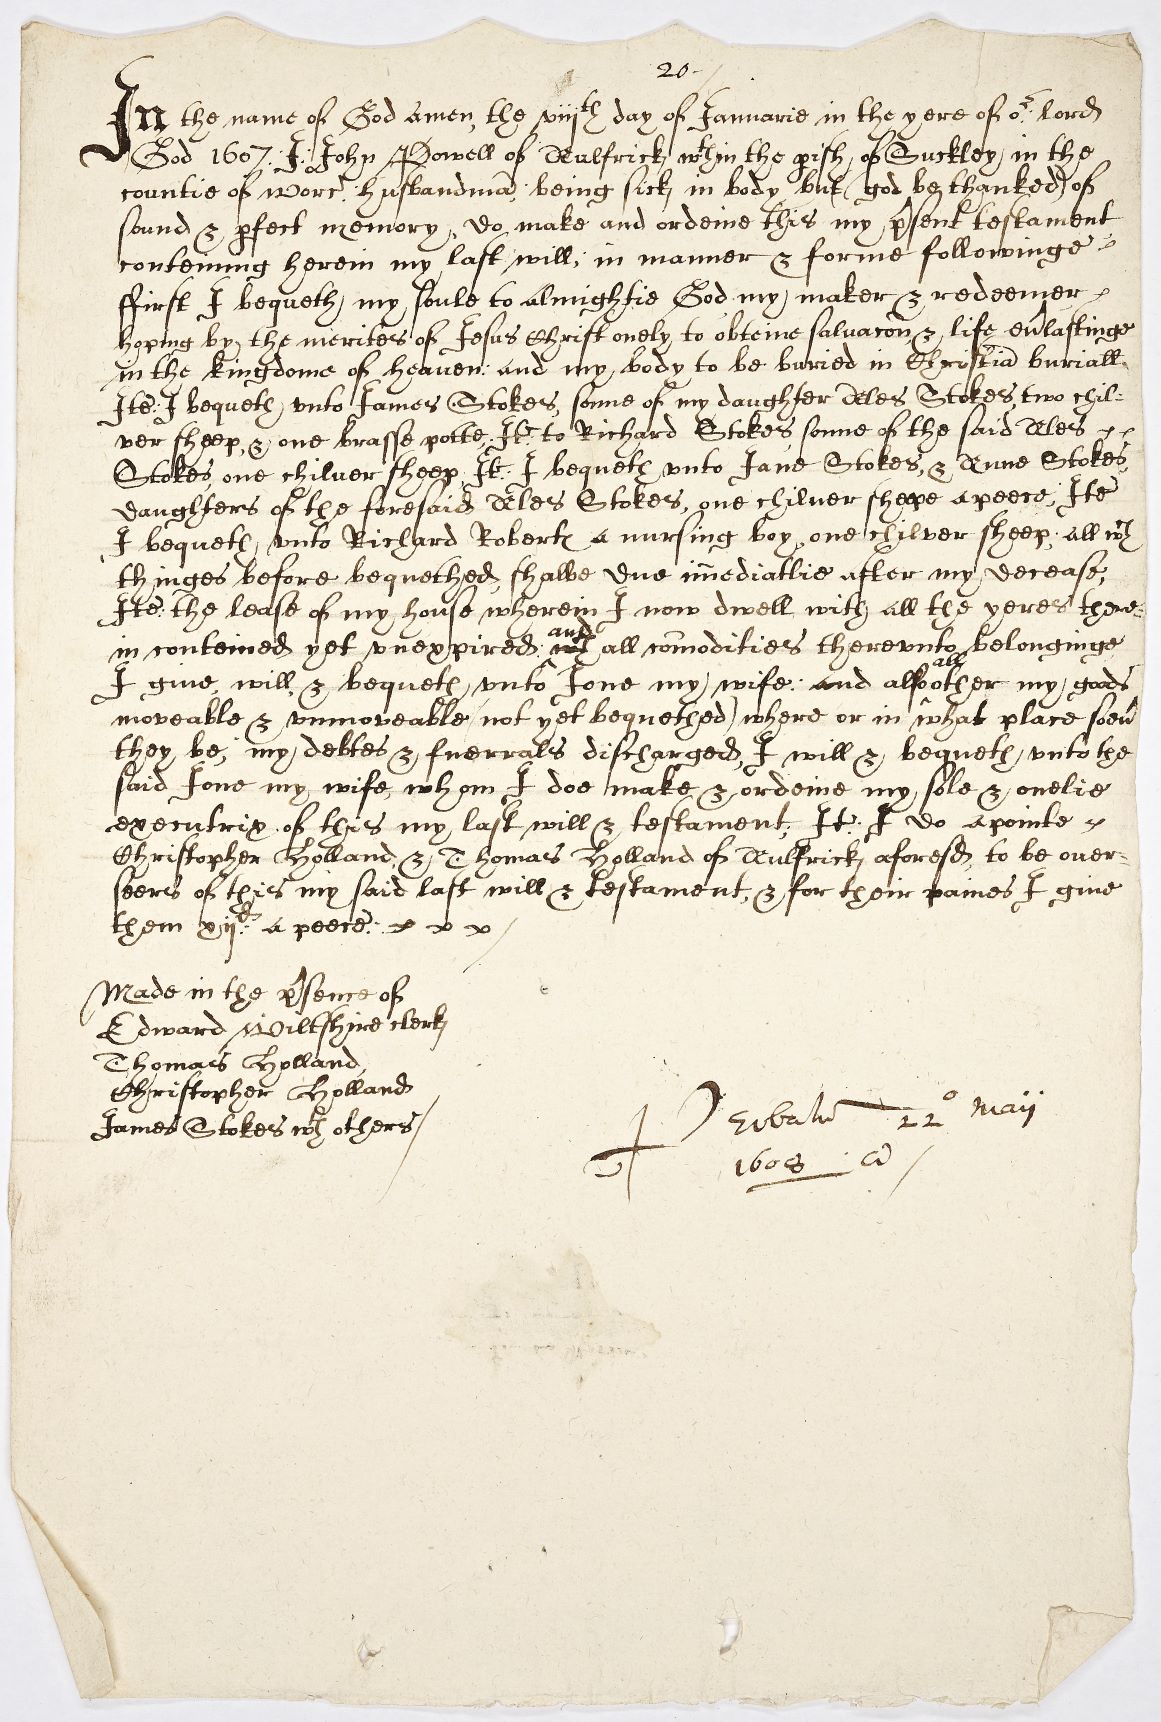 20
In the name of God Amen, the viijth day of Januarie in the yere of or lord
God 1607. I John Powell of Aulfrick wthin the pish of Suckley in the
countie of Worc husbandmā, being sick in body but (god be thanked) of
sound & pfect memory, do make and ordeine this my psent testament
conteining herein my last will, in manner & forme followinge
ffirst I bequeth my soule to Almightie God my maker & redeemer
hoping by the merites of Jesus Christ onely to obteine salvacon & life evlastinge
in the kingdome of heaven: and my body to be buried in Christiā buriall
Itē: I bequeth vnto James Stokes, sonne of my daughter Ales Stokes, two chil-
ver sheep, & one brasse potte, It: to Richard Stokes sonne of the said Ales
Stokes, one chilver sheep, It: I bequeth vnto Jane Stokes, & Anne Stokes,
daughters of the foresaid Ales Stokes, one chilver sheepe a peece, Itē
I bequeth vnto Richard Robertℯ a nursing boy, one chilver sheep, all wch
thinges before bequethed, shalbe due imediatlie after my decease,
Itē: the lease of my house wherein I now dwell with all the yeres there-
in conteined yet vnexpired, and all comodities therevnto belonginge
I give, will, & bequeth vnto Jone my wife: And also all other my goods
moveable & vnmoveable (not yet bequethed) where or in what place soev
they be, my debtes & fuerrals discharged, I will & bequeth vnto the
said Jone my wife, whom I doe make & ordeine my sole & onelie
executrix of this my last will & testament, It: I do apointe
Christopher Holland & Thomas Holland of Aulfrick aforesd, to be over-
seers of this my said last will & testament, & for their paines I give
them xijd a peece.
Made in the psence of
Edward Wiltshire clerk
Thomas Holland
Christopher Holland
James Stokes wth others
22o Maij
1608